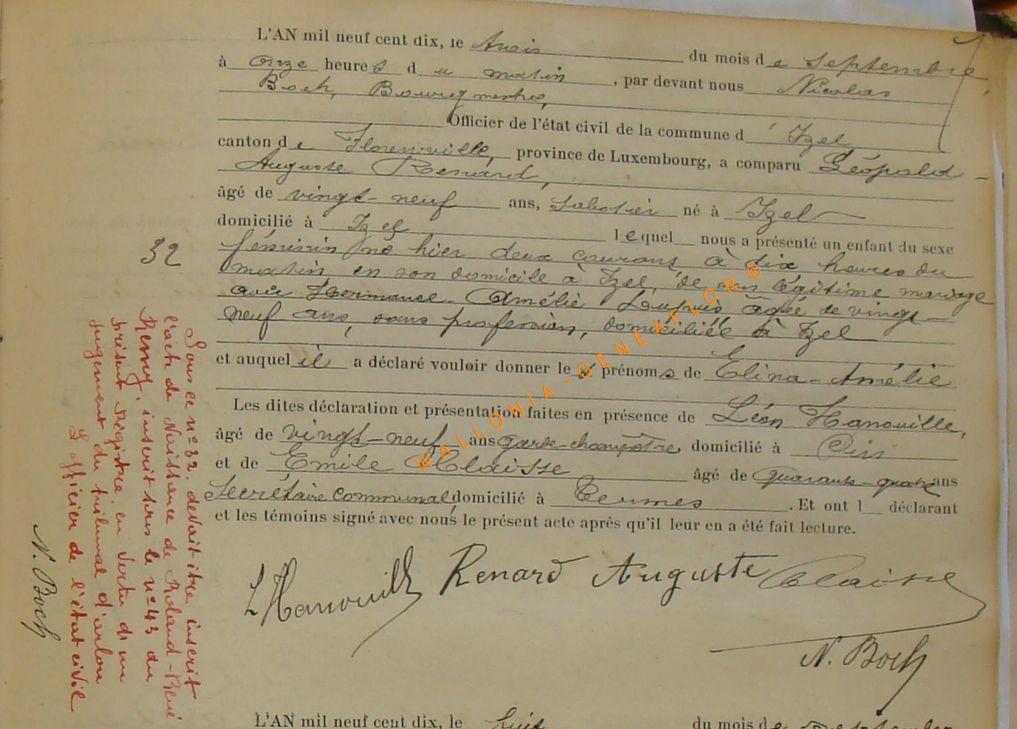 L'AN mil neuf cent dix, le trois du mois de Septembre
à onze heures du matin, par devant nous Nicolas
Boch, Bourgmestre,
Officier de l'état civil de la commune d'Izel
canton de Florenville, province de Luxembourg, a comparu Léopold-
Auguste Renard,
âgé de vingt-neuf ans, sabotier né à Izel
domicilié à Izel lequel nous a présenté un enfant du sexe
féminin né hier deux courant à dix heures du
matin, en son domicile à Izel, de son légitime mariage
avec Hermance Amélie âgée de vingt-
neuf ans, sans profession, domiciliée à Izel
et auquel il a déclaré vouloir donner les prénoms de Elina-Amélie
Les dites déclaration et présentation faites en présence de Léon Hanouille,
âgé de vingt-neuf ans garde-champêtre domicilié à Pin
et de Emile Claisse âgé de quarante-quatre ans
Secrétaire communal domicilié à Termes. Et ont l déclarant
et les témoins signé avec nous le présent acte après qu'il leur en a été fait lecture.
L Hanouille Renard Auguste Claisse
N. Boch
32
Sous ce n° 32. devait être inscrit
l'acte de Naissance de Roland-René
Remy, inscrit sous le n° 43 du
présent Registre en vertu d'un
jugement du tribunal d'Arlon
L'officier de l'état civil
N. Boch
WALLONIA-GENEAFLOR®
L'AN mil neuf cent dix, le huit du mois de Septembre